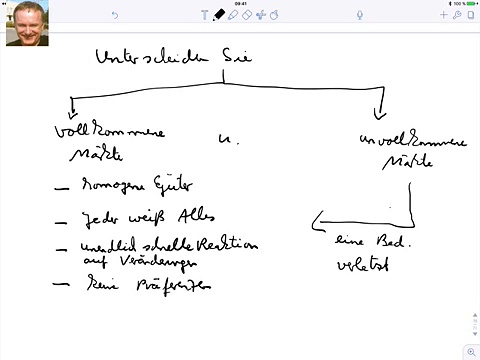 09:41
100 %
T
Unterscheiden Sie
vollkommene
Märkte
u.
unvollkommene
Märkte
– homogene Güter
– Jeder weiß Alles
– unendlich schnelle Reaktion
auf Veränderungen
– keine Präferenzen
eine Bed.
verletzt